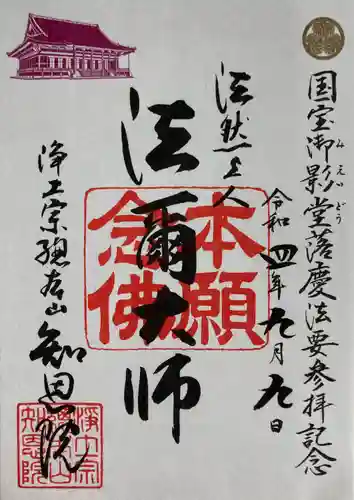 国宝御影堂落慶法要参拝記念
みえいどう
令和四年九月九日
法然上人
法爾大師
本願
念佛
浄土宗総本山
知恩院
浄土宗
総本山
知恩院